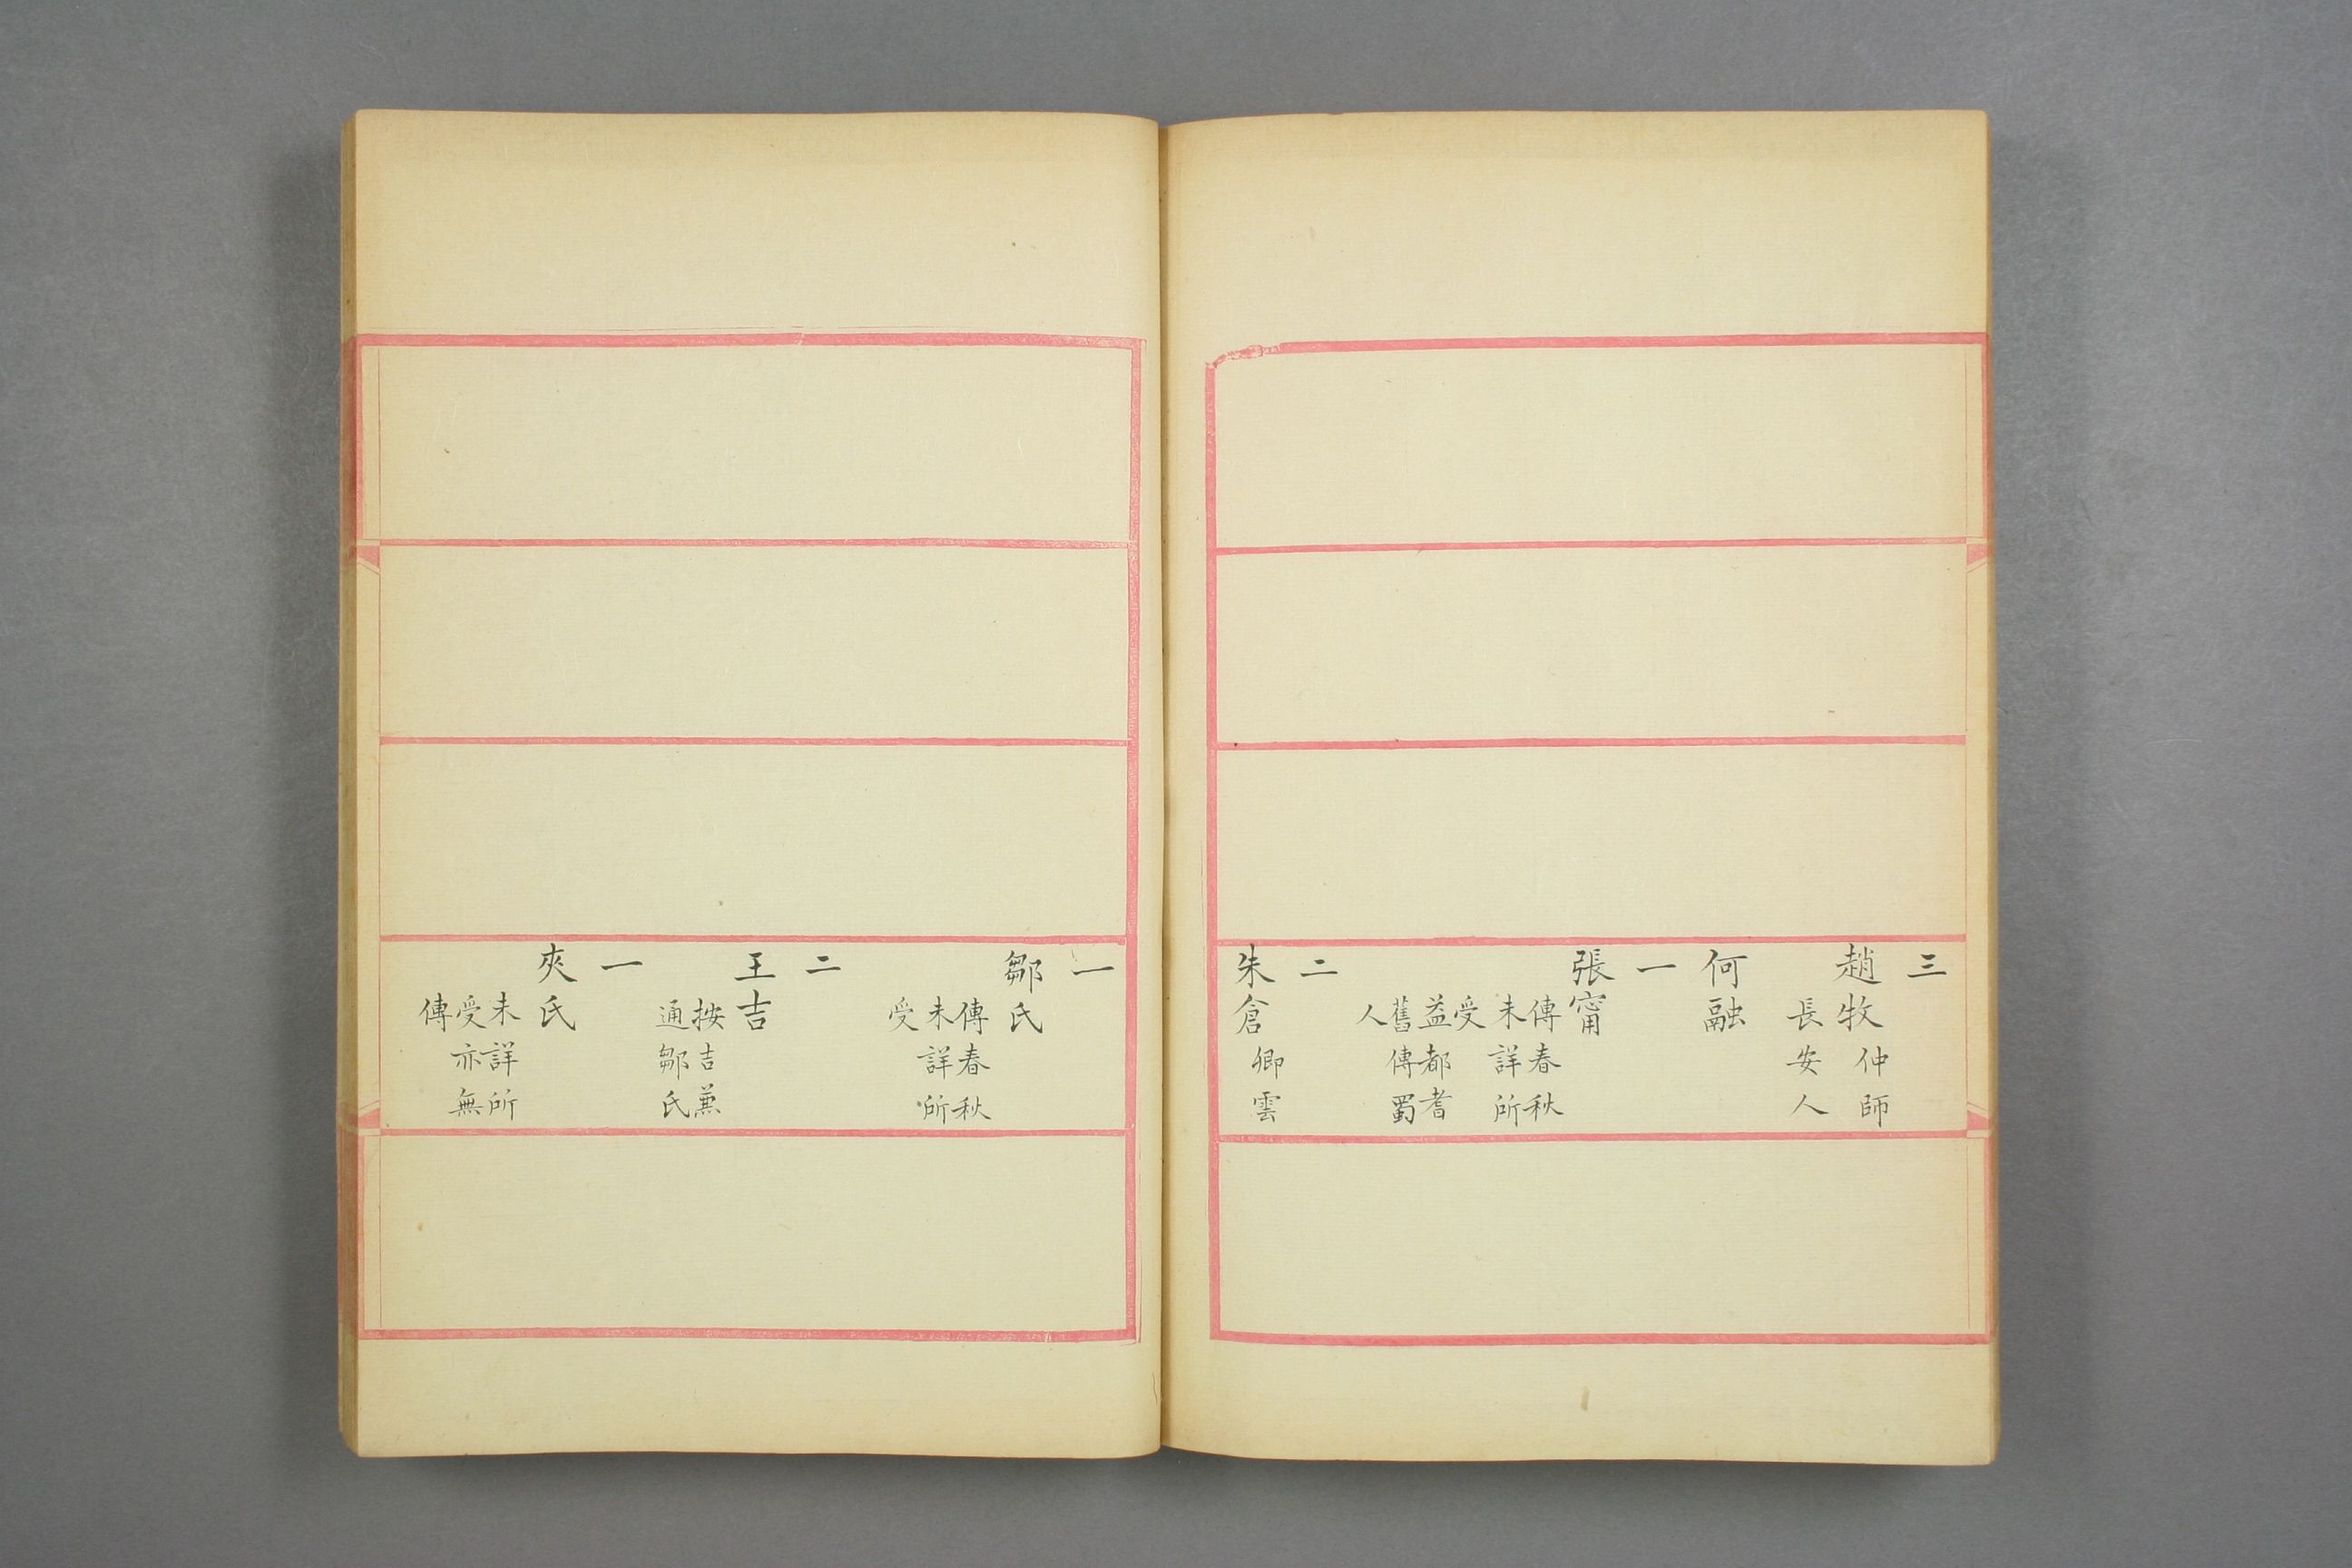 三
趙牧仲師
長安人
何融
一
張甯
傳春秋
未詳所
受
益都耆
舊傳蜀
人
二
朱倉卿雲
一
鄒氏
傳春秋
未詳所
受
二
王吉
按吉兼
通鄒氏
一
夾氏
未詳所
受亦無
傳